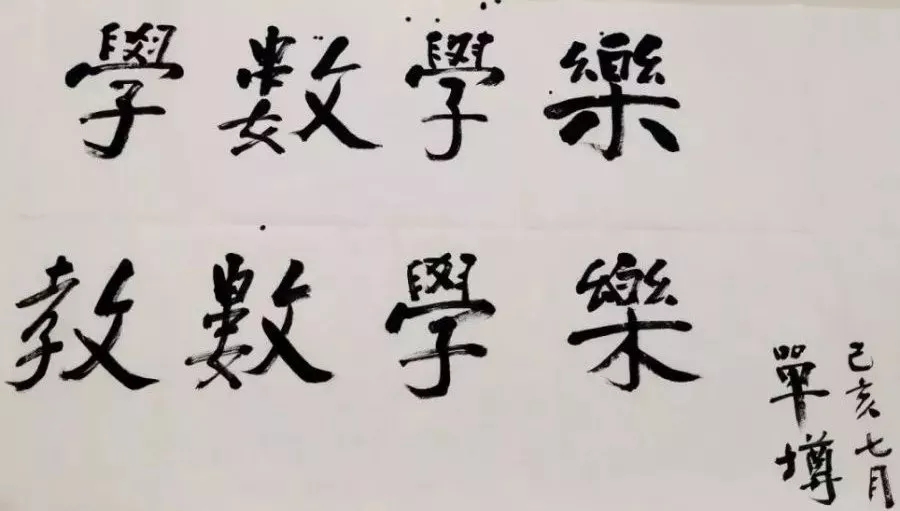 學數學樂
教數學樂
己亥七月
單墫